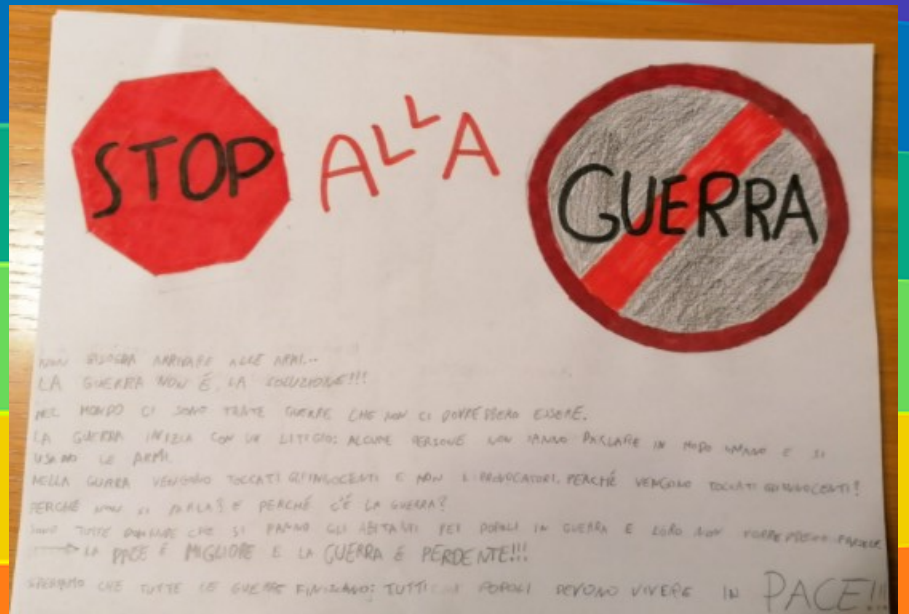 STOP ALLA GUERRA
NON BISOGNA ARRIVARE ALLE ARMI...
LA GUERRA NON È, LA SOLUZIONE!!!
NEL MONDO CI SONO TANTE GUERRE CHE NON CI DOVREBBERO ESSERE.
LA GUERRA INIZIA CON UN LITIGIO: ALCUNE PERSONE NON SANNO PARLARE IN MODO UMANO E SI
USANO LE ARMI.
NELLA GUERRA VENGONO TOCCATI GLI INNOCENTI E NON I PROVOCATORI. PERCHÉ VENGONO TOCCATI GLI INNOCENTI?
PERCHÉ NON SI PARLA? E PERCHÉ C'È LA GUERRA?
SONO TUTTE DOMANDE CHE SI FANNO GLI ABITANTI DEI POPOLI IN GUERRA E LORO NON
LA PACE È MIGLIORE E LA GUERRA È PERDENTE!!!
SPERIAMO CHE TUTTE LE GUERRE FINISCANO: TUTTI I POPOLI DEVONO VIVERE IN PACE!!!